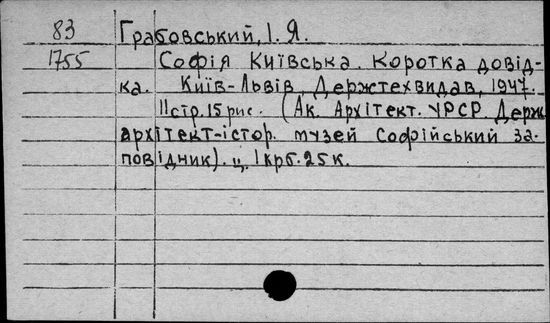 83 Грабовський, І. Я.
1755 Софія Київська. Коротка довід-
ка. Київ-Львів, Держтехвидав, 1947.
11 стр. 15 рис. (Ак. Архітект. УРСР. Держ.
архітект-істор. музей Софійський за-
повідник). ц. 1 крб. 25 к.